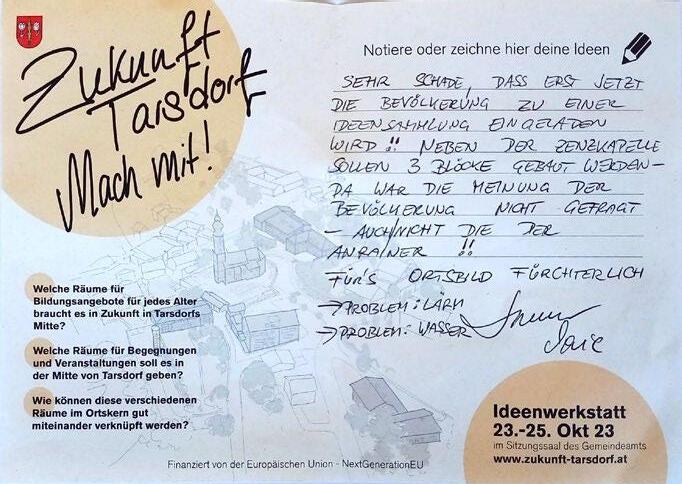 Zukunft
Tarsdorf
Mach mit!
Notiere oder zeichne hier deine Ideen
SEHR SCHADE, DASS ERST JETZT
DIE BEVÖLKERUNG ZU EINER
IDEENSAMMLUNG EINGELADEN
WIRD !! NEBEN DER ZENZKAPELLE
SOLLEN 3 BLÖCKE GEBAUT WERDEN –
DA WAR DIE MEINUNG DER
BEVÖLKERUNG NICHT GEFRAGT
– AUCH NICHT DIE DER
ANRAINER !!
FÜR'S ORTSBILD FÜRCHTERLICH
→ PROBLEM: LÄRM
→ PROBLEM: WASSER
Welche Räume für
Bildungsangebote für jedes Alter
braucht es in Zukunft in Tarsdorfs
Mitte?
Welche Räume für Begegnungen
und Veranstaltungen soll es in
der Mitte von Tarsdorf geben?
Wie können diese verschiedenen
Räume im Ortskern gut
miteinander verknüpft werden?
Ideenwerkstatt
23.-25. Okt 23
im Sitzungssaal des Gemeindeamts
www.zukunft-tarsdorf.at
Finanziert von der Europäischen Union - NextGenerationEU